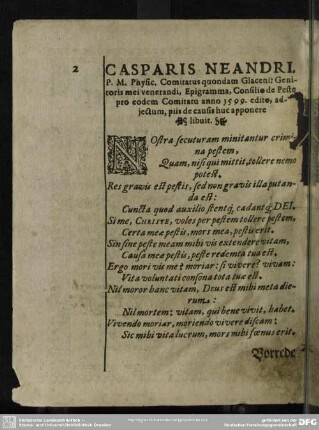 2
CASPARIS NEANDRI,
P. M. Physic. Comitatus quondam Glacens: Geni-
toris mei venerandi, Epigramma, Consilio de Peste
pro eodem Comitatu anno 1599. edito, ad-
jectum, piis de causis huc apponere
libuit.
NOstra secuturam minitantur crimi-
na pestem,
Quam, nisi qui mittit, tollere nemo
potest.
Res gravis est pestis, sed non gravis illa putan-
da est:
Cuncta quod auxilio stentq́; cadantq́; DEI.
Si me, CHRISTE, voles per pestem tollere pestem,
Certa mea pestis, mors mea, pestis erit.
Sin sine peste meam mihi vis extendere vitam,
Causa mea pestis, peste redemta tua est.
Ergo mori vis me? moriar: si vivere? vivam:
Vita voluntati consona tota tua est.
Nil moror hanc vitam, DEUS est mihi meta die-
rum:
Nil mortem: vitam, qui bene vivit, habet.
Vivendo moriar, moriendo vivere discam:
Sic mihi vita lucrum, mors mihi fœnus erit.
Vorrede